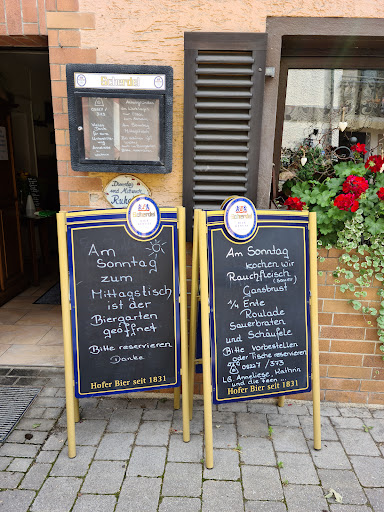 Scherdel
Dienstag
und Mittwoch
Ruhetag
Scherdel
Am
Sonntag
zum
Mittagstisch
ist der
Biergarten
geöffnet
Bitte reservieren
Danke
Hofer Bier seit 1831
Scherdel
Am Sonntag
kochen wir
Rauchfleisch (sauer)
Gansbrust
1/4 Ente
Roulade
Sauerbraten
und Schäufele
Bitte vorbestellen
oder Tische reservieren
09227 / 973
LG. Anneliese, Kathrin
und die Feen
Hofer Bier seit 1831